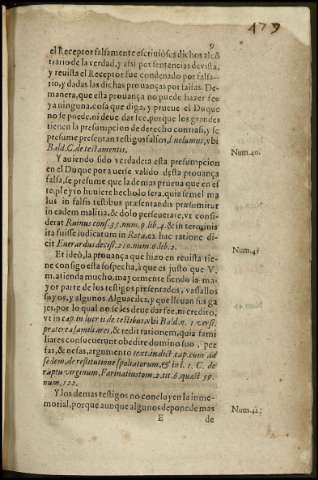 479
9
el Receptor falsamente escriuio, sus dichos al cõ
trario de la verdad, y assi por sentencias de vista,
y reuista el Receptor fue condenado por falsa-
rio, y dadas las dichas prouanças por falsas. De
manera, que esta prouança no puede hazer fee
ya ninguna, cosa que diga, y prueue el Duque
no se puede, ni deue dar fee, porque los grandes
tienen la presumpcion de derecho contra si, y se
presume presentan testigos falsos, d. nolumus, vbi
Bald. C. de testamentis.
Y auiendo sido verdadera esta presumpcion
en el Duque por auerse valido desta prouança
falsa, se presume que la demas prueua que en es-
te pleyto huuiere hecho lo sera, quia semel ma
lus in falsis testibus præsentandis præsumitur
in eadem malitia, & dolo perseuerare, vt consi-
derat Ruinus cons. 35. num. 9. lib. 4. & in terminis
ita fuisse iudicatum in Rota, ex hac ratione di-
cit Euerardus decis. 210. num. 6. lib. 2.
Et ideò, la prouança que hizo en reuista tie-
ne consigo esta sospecha, à que es justo que V.
m. atienda mucho, mayormente siendo la ma-
yor parte de los testigos presentados, vassallos
suyos, y algunos Alguaciles, y que lleuan sus ga
jes, por lo qual no se les deue dar fee, ni credito,
vt in cap. in lucris de testibus, vbi Bald. n. 1. versi.
præterea familiares, & redit rationem, quia fami
liares consueuerunt obedire domino suo, per
fas, & nefas, argumento text. in dict. cap. cum ad
sedem, de restitutione spoliatorum, & in l. 1. C. de
raptu virginum, Farinatius tom. 2. tit. 6. quæst. 59.
num. 122.
Y los demas testigos no concluyen la inme-
morial, porque aunque algunos deponẽ de mas
E de
Num. 40.
Num. 41
Num. 42.